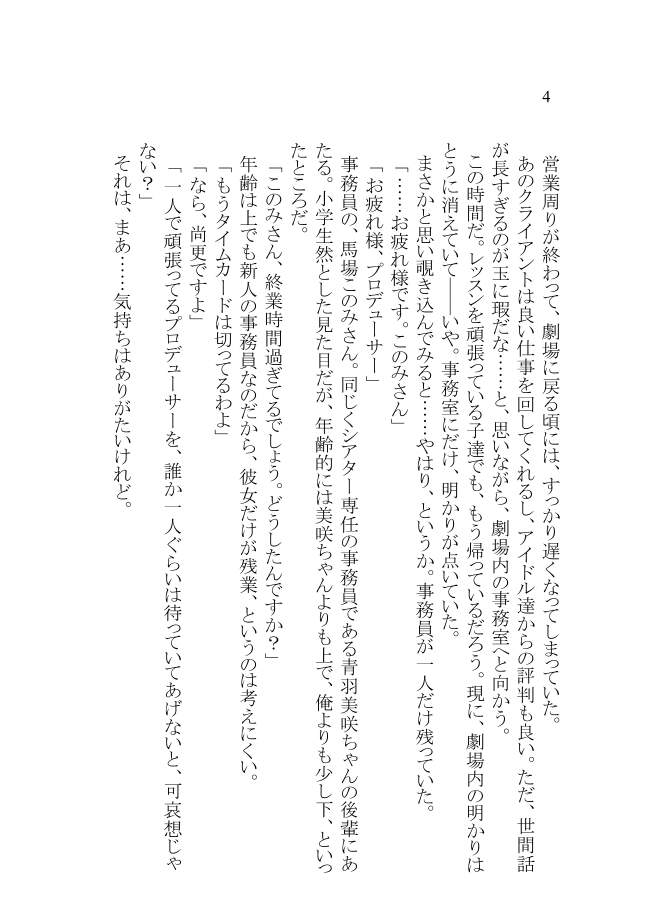 4
営業周りが終わって、劇場に戻る頃には、すっかり遅くなってしまっていた。
あのクライアントは良い仕事を回してくれるし、アイドル達からの評判も良い。ただ、世間話
が長すぎるのが玉に瑕だな……と、思いながら、劇場内の事務室へと向かう。
この時間だ。レッスンを頑張っている子達でも、もう帰っているだろう。現に、劇場内の明かりは
とうに消えていて――いや。事務室にだけ、明かりが点いていた。
まさかと思い覗き込んでみると……やはり、というか。事務員が一人だけ残っていた。
「……お疲れ様です。このみさん」
「お疲れ様、プロデューサー」
事務員の、馬場このみさん。同じくシアター専任の事務員である青羽美咲ちゃんの後輩にあ
たる。小学生然とした見た目だが、年齢的には美咲ちゃんよりも上で、俺よりも少し下、といっ
たところだ。
「このみさん、終業時間過ぎてるでしょう。どうしたんですか？」
年齢は上でも新人の事務員なのだから、彼女だけが残業、というのは考えにくい。
「もうタイムカードは切ってるわよ」
「なら、尚更ですよ」
「一人で頑張ってるプロデューサーを、誰か一人ぐらいは待っていてあげないと、可哀想じゃ
ない？」
それは、まあ……気持ちはありがたいけれど。